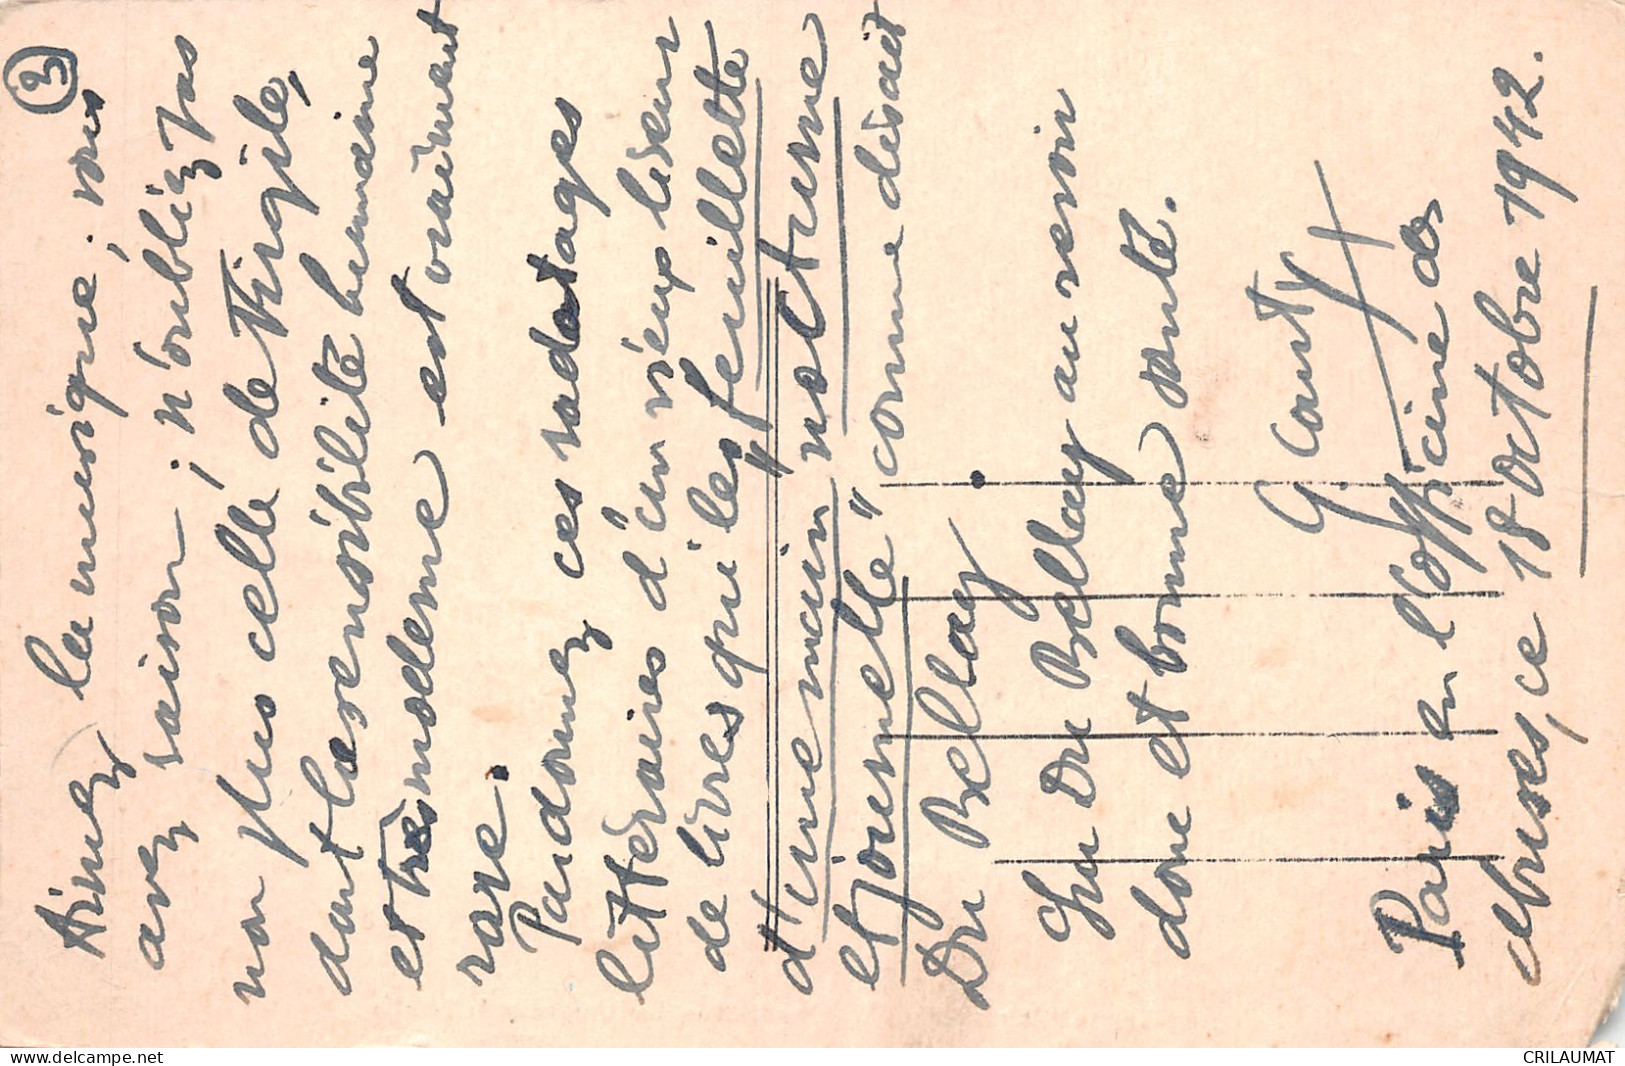 ③
Aimez la musique ; vous
avez raison ; n'oubliez pas
non plus celle de Virgile,
dont la sensibilité humaine
et très moderne est vraiment
rare.
Pardonnez ces radotages
littéraires d'un vieux liseur
de livres qui les "feuillette
d'une main nocturne
et journelle" comme disait
Du Bellay.
Lu Du Bellay au revoir
donc et bonne santé.
G. Canty
Paris en l'officine des
abuses, ce 18 octobre 1942.
www.delcampe.net
CRILAUMAT